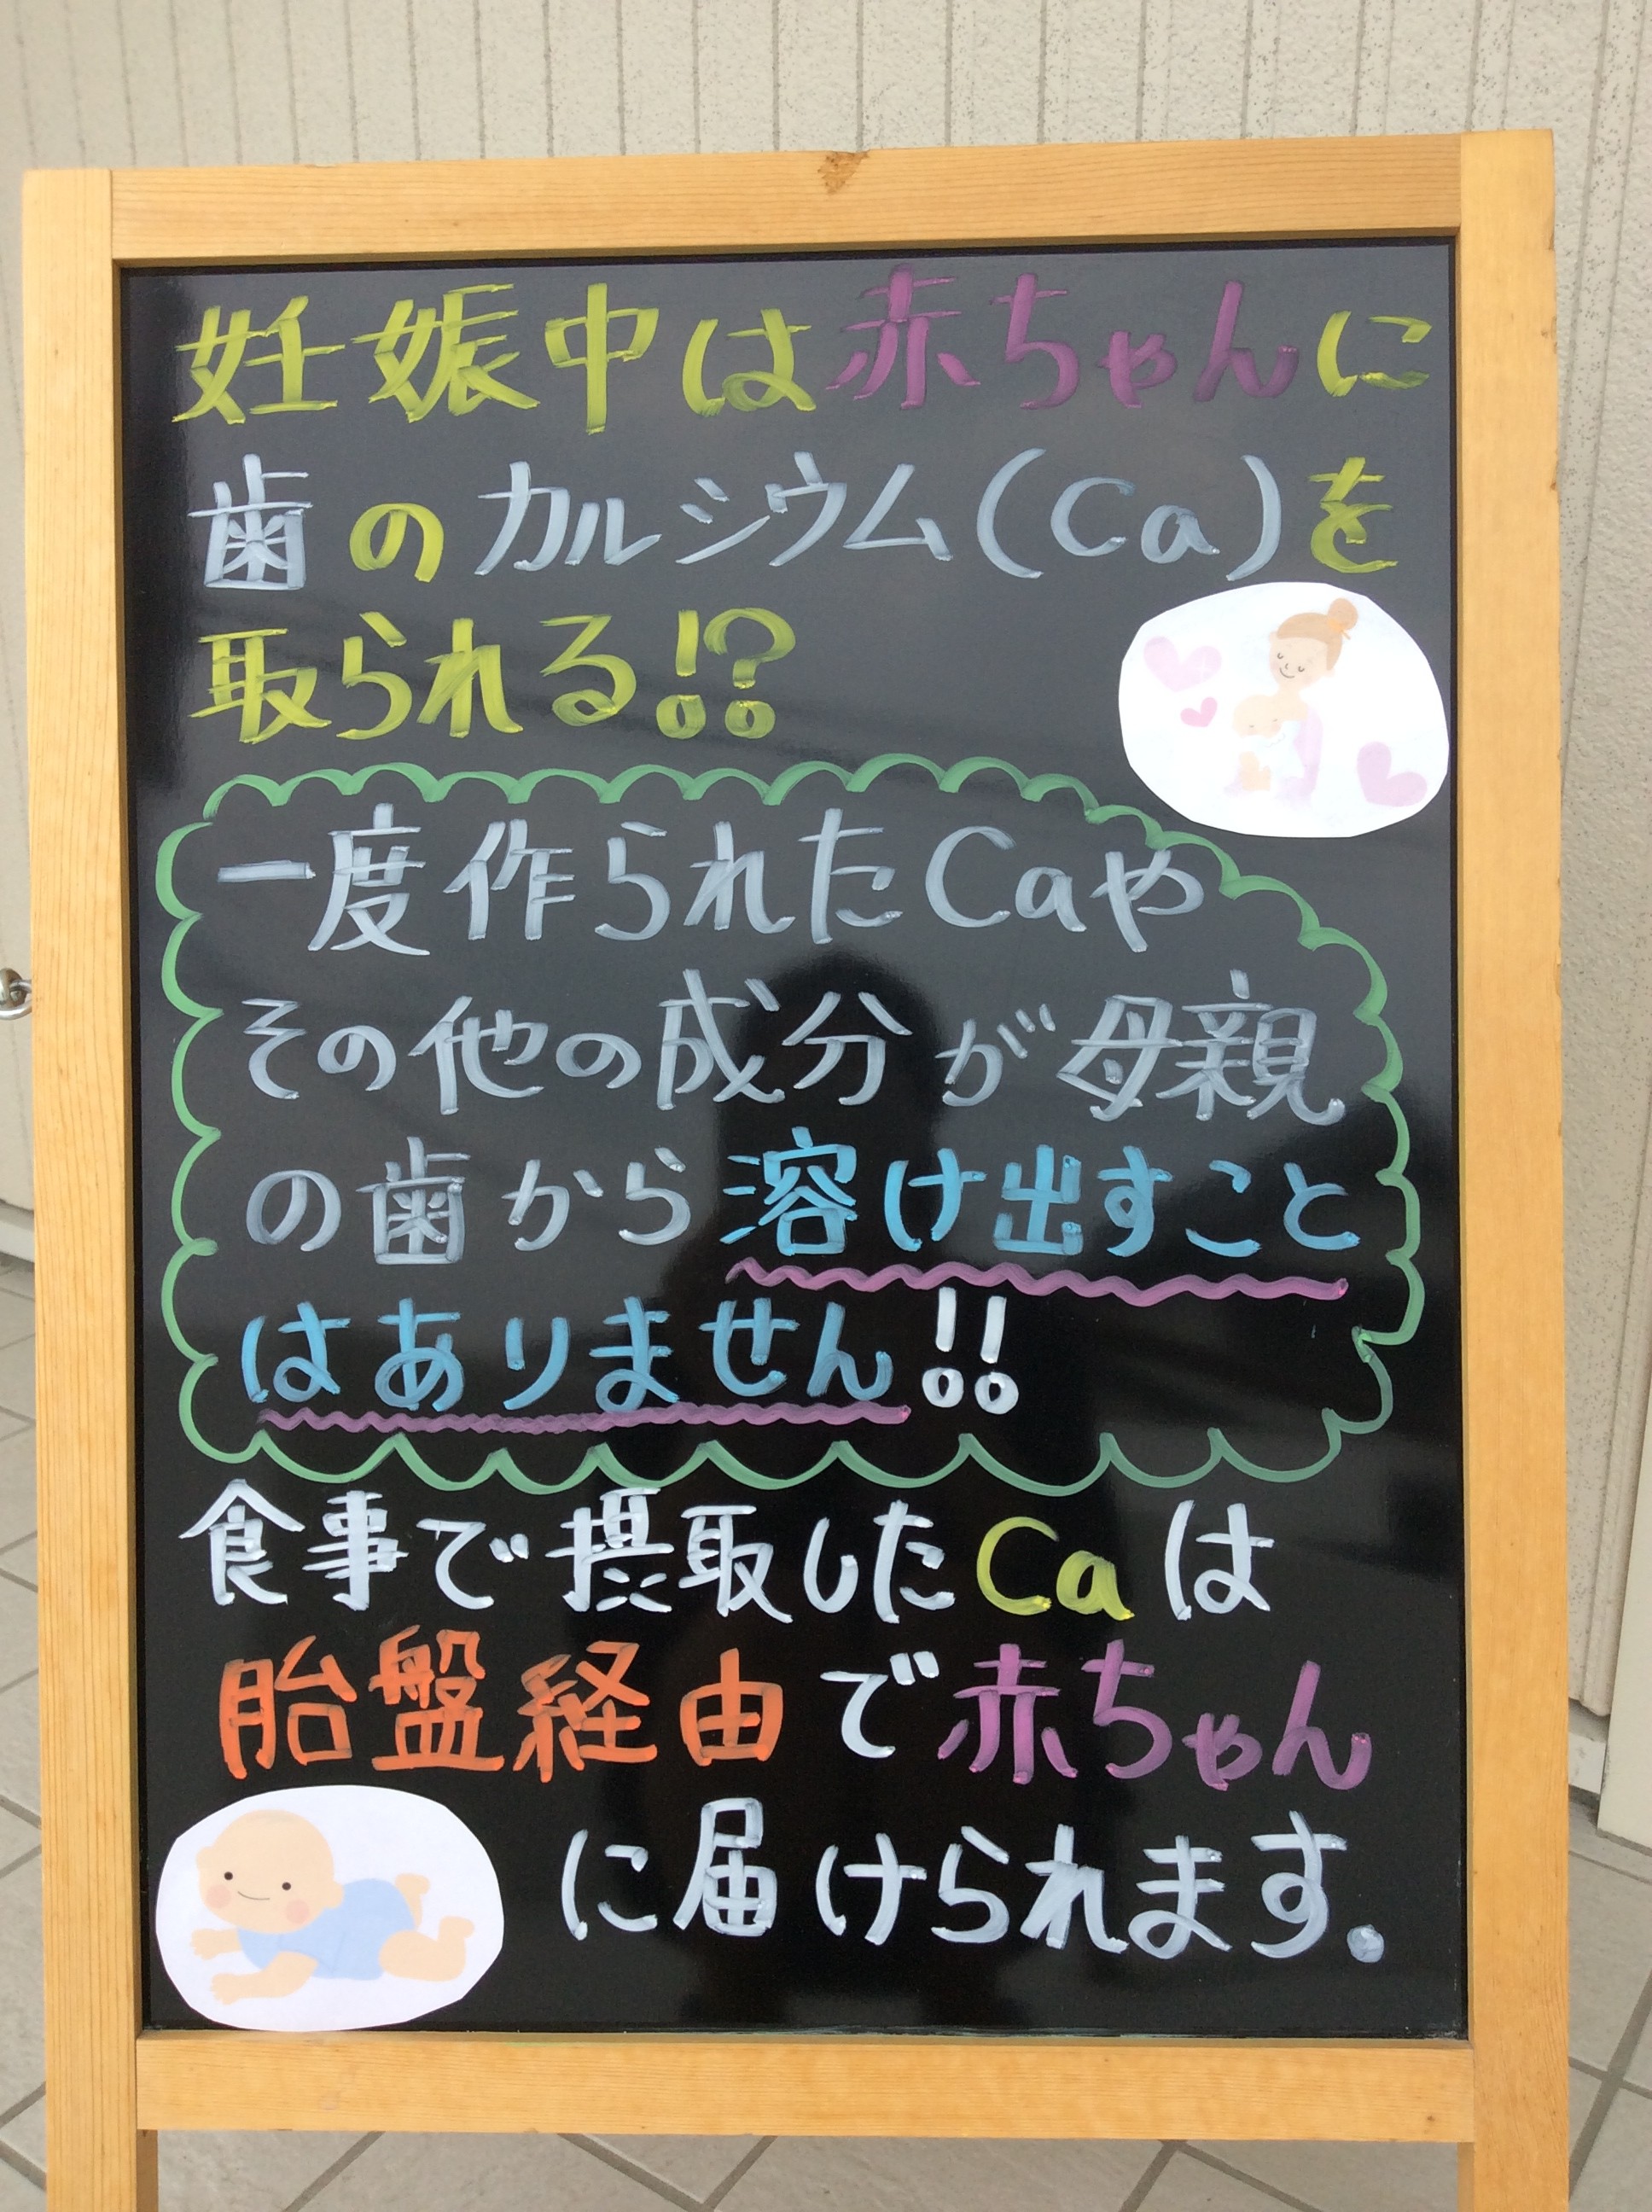 妊娠中は赤ちゃんに
歯のカルシウム(Ca)を
取られる!?
一度作られたCaや
その他の成分が母親
の歯から溶け出すこと
はありません!!
食事で摂取したCaは
胎盤経由で赤ちゃん
に届けられます。